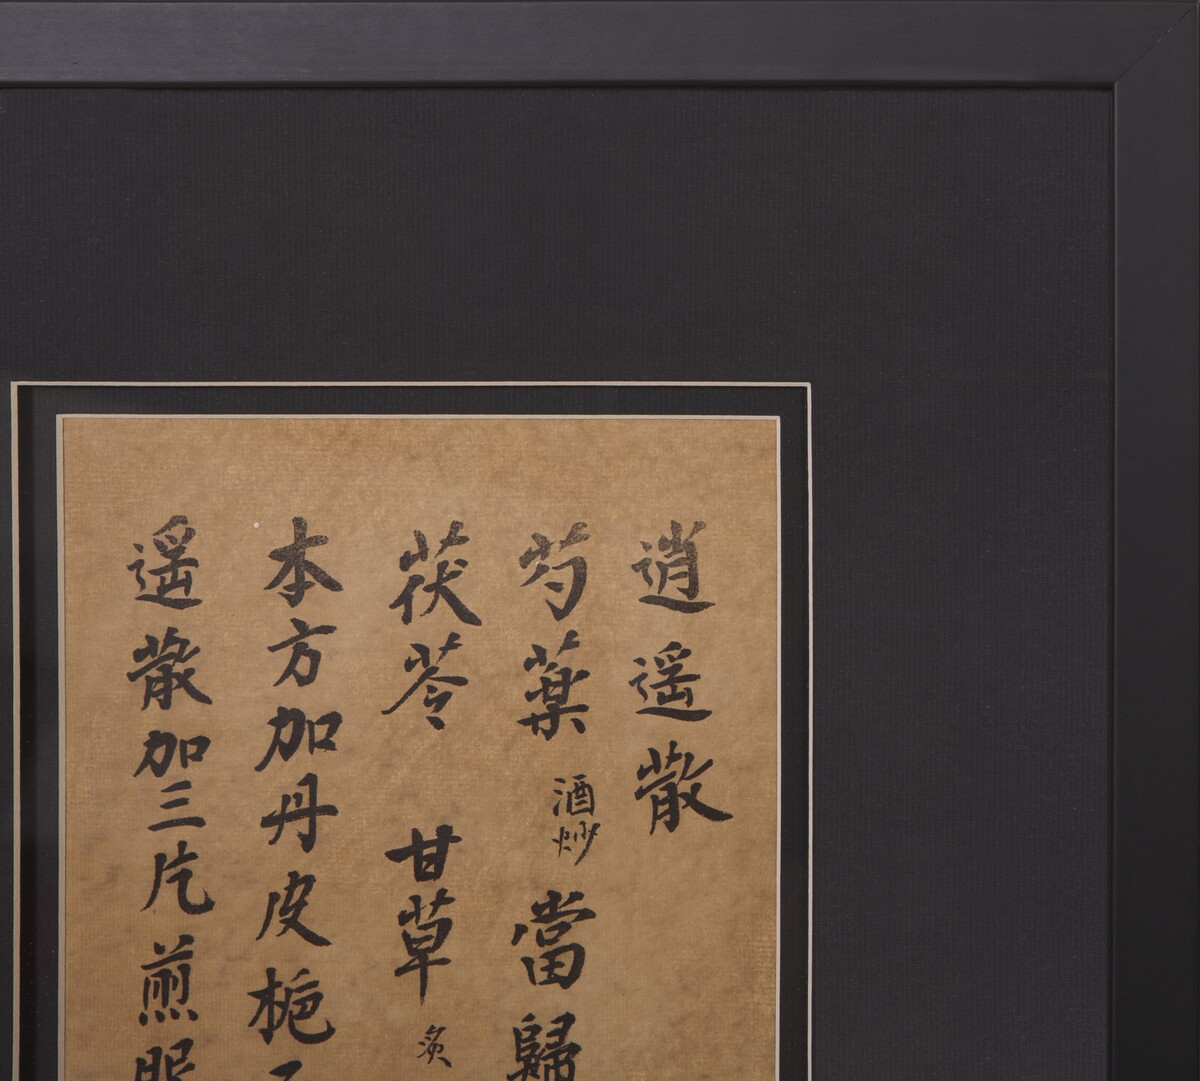 逍遥散
芍薬 酒炒 當歸
茯苓 甘草 炙
本方加丹皮梔子
遥散加三片煎服